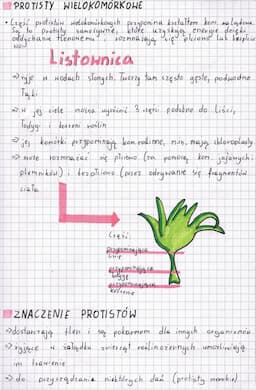 PROTISTY WIELOKOMÓRKOWE
• Część protistów wielokomórkowych przypomina kształtem kom. roślinne.
Są to protisty samożywne, które uzyskują energię dzięki
oddychaniu tlenowemu, rozmnażają się płciowo lub bezpłciowo
Listownica
→ żyje w wodach słonych. Tworzy tam często gęste, podwodne
łąki
→ w jej ciele można wyróżnić 3 części podobne do liści,
łodygi i korzeni roślin
→ jej komórki przypominają kom. roślinne, m.in. mają chloroplasty
→ może rozmnażać się płciowo (za pomocą kom. jajowych i
plemników) i bezpłciowo (przez odrywanie się fragmentów
ciała
Część:
przypominająca
liście
przypominająca
łodygę
przypominająca
korzenie
ZNACZENIE PROTISTÓW
→ dostarczają tlen i są pokarmem dla innych organizmów
→ żyjące w żołądku zwierząt roślinożernych umożliwiają
im trawienie
→ do przyrządzania niektórych dań (protisty morskie)